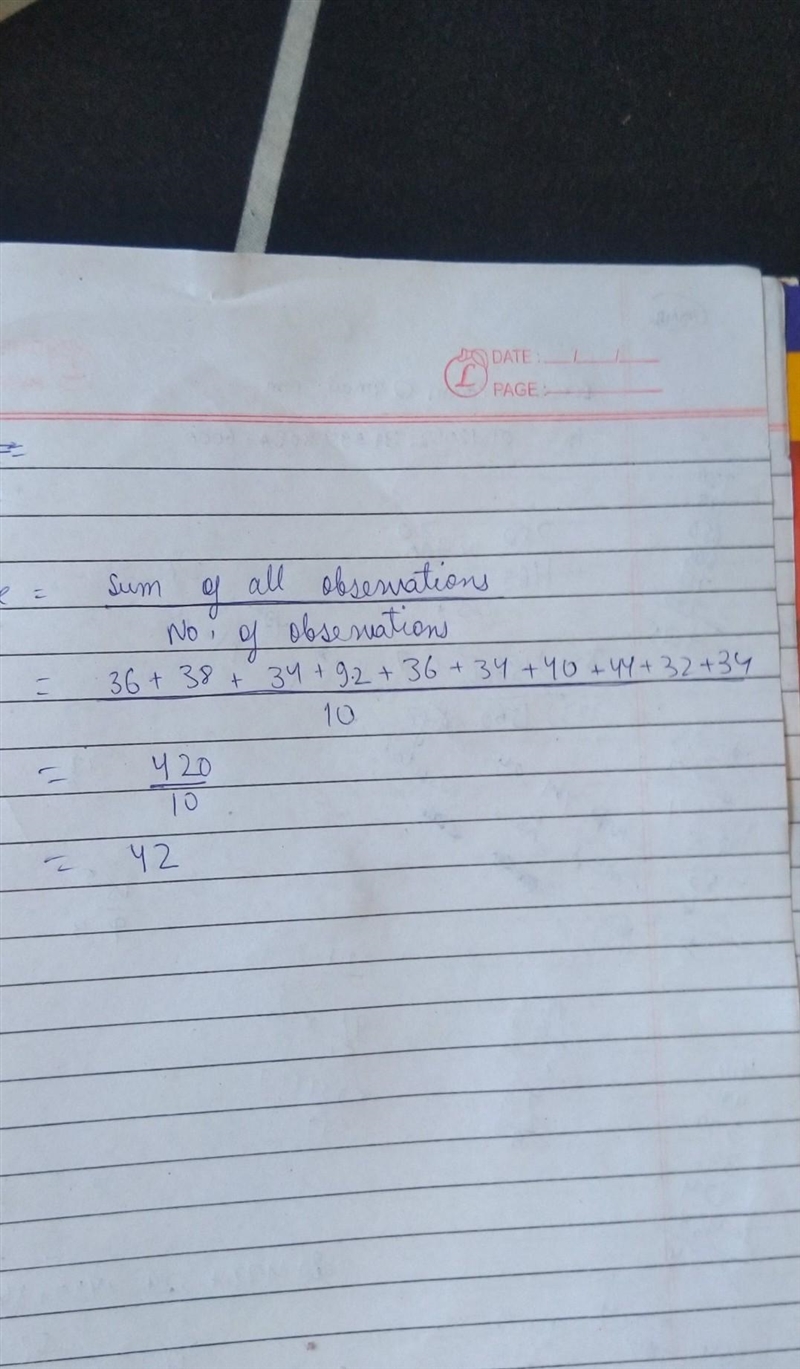 DATE: / /
PAGE:
=
= Sum of all observations
No. of observations
= 36 + 38 + 34 + 92 + 36 + 34 + 40 + 44 + 32 + 34
10
= 420
10
= 42